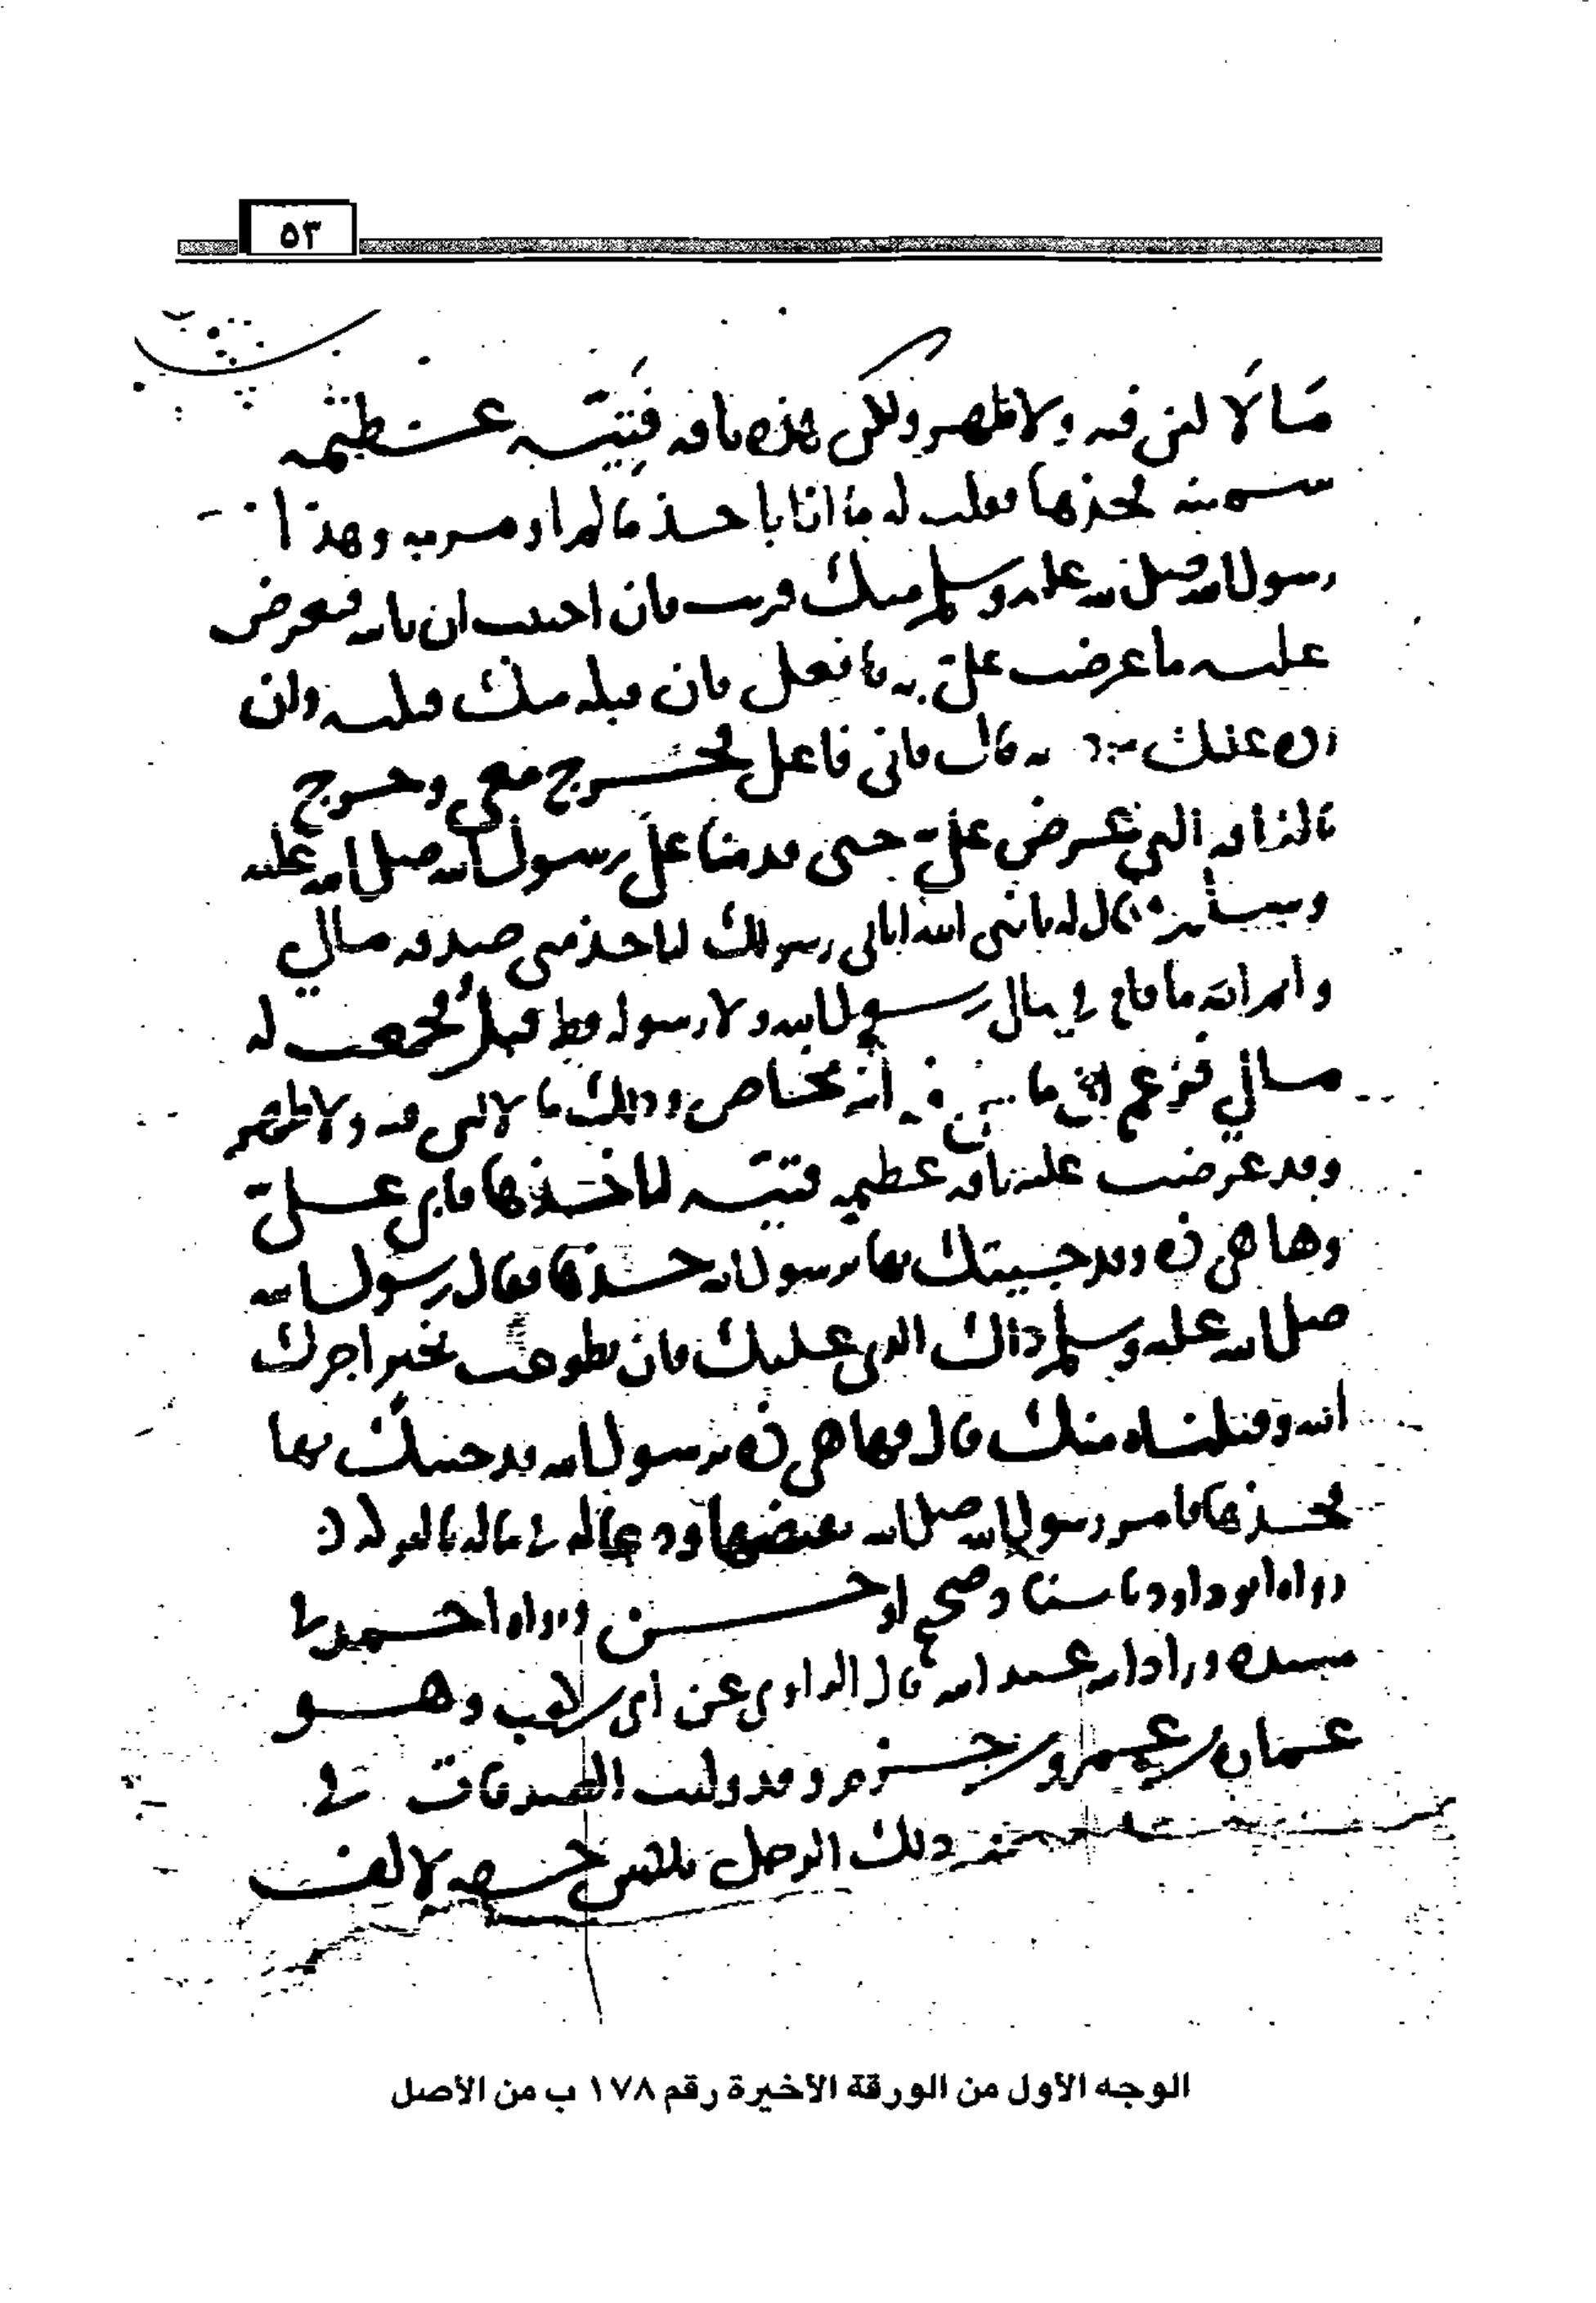 ٥٣
ما لا لبن فيه ولا ظهر ولكن هذه ناقة فتية عظيمة
سمينة فخذها فقلت له ما انا باخذ ما لم اومر به وهذا
رسول الله صلى الله عليه وسلم منك قريب فان احببت ان تاتيه فتعرض
عليه ما عرضت علي فافعل فان قبله منك قبلته وان
رده عليك رددته قال فاني فاعل فخرج معي وخرج
بالناقة التي عرض علي حتى قدمنا على رسول الله صلى الله عليه
وسلم فقال له يا نبي الله اتاني رسولك لياخذ مني صدقة مالي
وايم الله ما قام في مالي رسول الله ولا رسوله قط قبله فجمعت له
مالي فزعم ان ما علي فيه ابنة مخاض وذلك ما لا لبن فيه ولا ظهر
وقد عرضت عليه ناقة عظيمة فتية لياخذها فابى علي
وها هي ذه وقد جيتك بها يرسول الله خذها فقال رسول الله
صلى الله عليه وسلم ذاك الذي عليك فان تطوعت بخير اجرك
الله وقبلناه منك قال فها هي ذه يرسول الله قد جيتك بها
فخذها فامر رسول الله صلى الله بقبضها ودعا له في ماله بالبركة
رواه ابو داود باسناد صحيح او حسن ورواه احمد في
مسنده وزاد ابنه عبد الله قال الراوي عن ابي بن كعب وهو
عمارة بن عمرو بن حزم وقد وليت الصدقات في
ذلك الرجل ثلثين حقة لالف
الوجه الأول من الورقة الأخيرة رقم ١٧٨ ب من الأصل